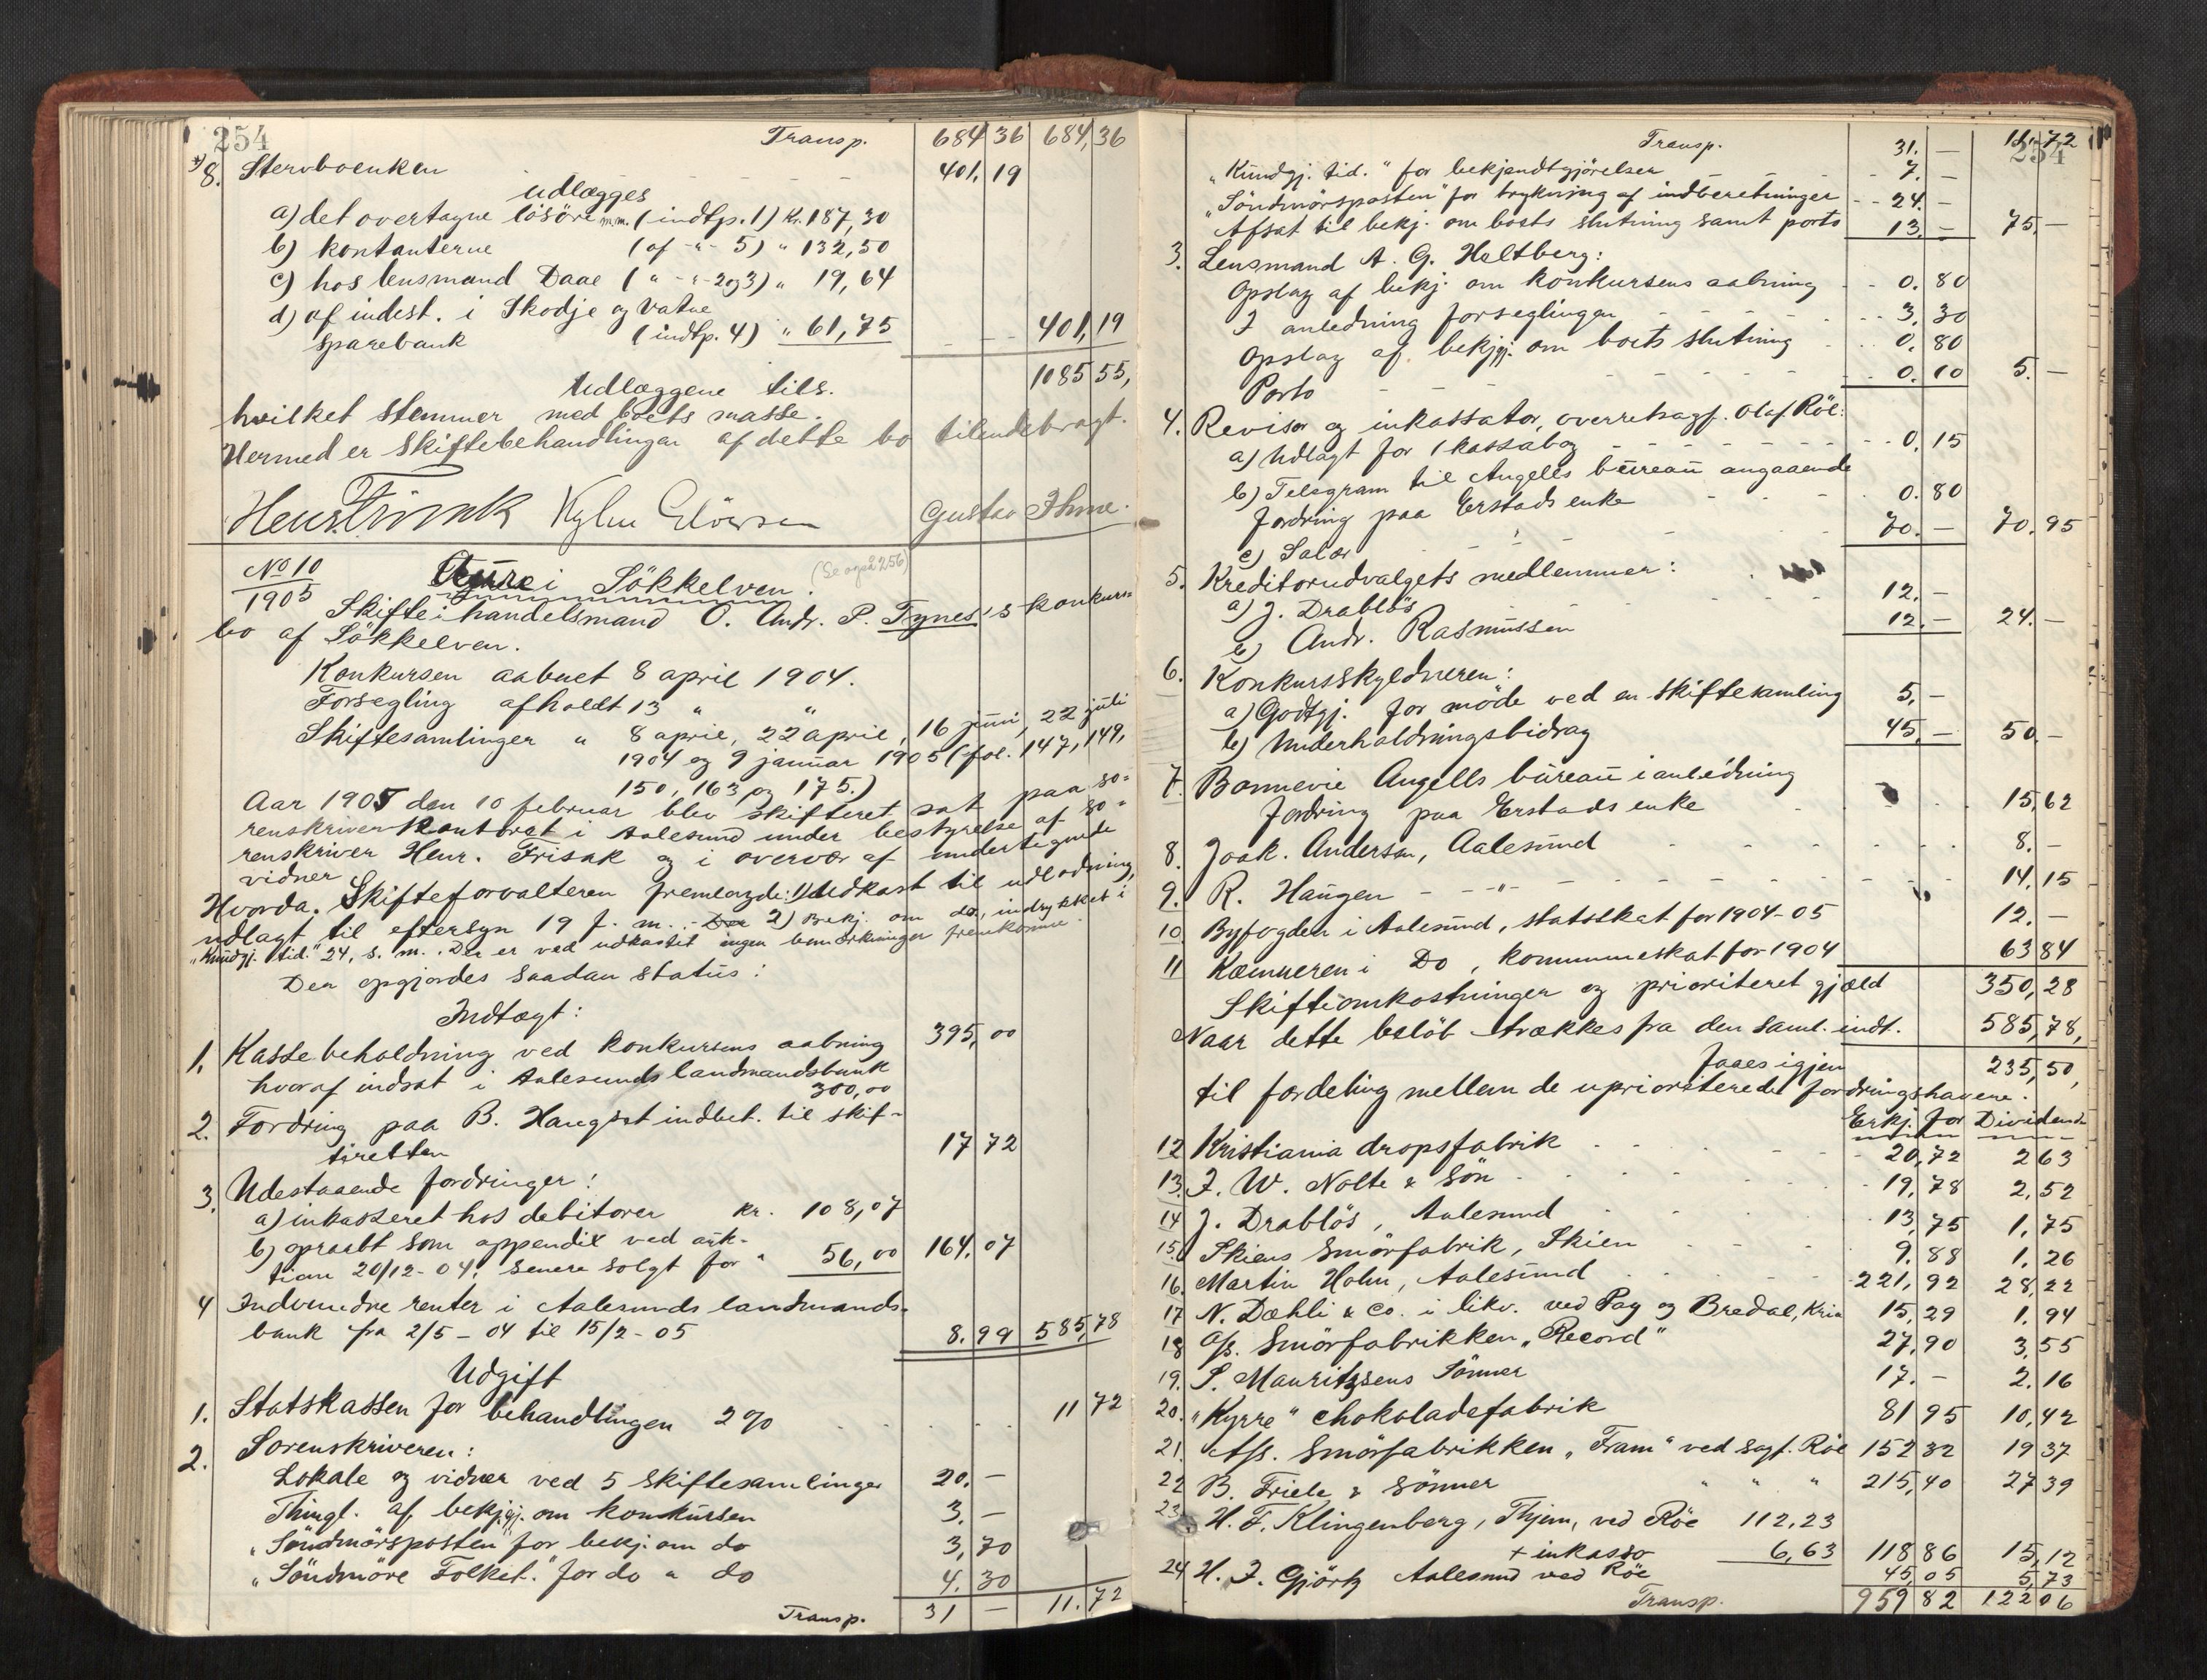 254
Transp. 684 36 684,36
8. Stervboenken - - - - - 401,19
udlægges
a) det overtagne lösöre m.m. (indtp. 1) Kr. 187,30
b) kontanterne (af -"- 5) " 132,50
c) hos lensmand Daae ( " -"- 2 og 3) " 19,64
d) af indest. i Skodje og Vatne
sparebank (indtp. 4) " 61,75 - - - 401,19
Udlæggene tils. 1085 55,
hvilket stemmer med boets masse.
Hermed er Skiftebehandlingen af dette bo tilendebragt.
Henr Frisak Gustav Ihme.
No 10
1905
Aure i Sökkelven. (Se også 256)
Skifte i handelsmand O. Andr. P. Tynes's konkurs-
bo af Sökkelven.
Konkursen aabnet 8 april 1904.
Forsegling afholdt 13 " "
Skiftesamlinger " 8 april, 22 april, 16 juni, 22 juli
1904 og 9 januar 1905 (fol. 147, 149,
150, 163 og 175.)
Aar 1905 den 10 februar blev skifteret sat paa so-
renskriverkontoret i Aalesund under bestyrelse af so-
renskriver Henr. Frisak og i overvær af undertegnede
vidner
Hvorda: Skifteforvalteren fremlagde: 1) Udkast til udlodning,
udlagt til eftersyn 19 f. m. 2) Bekj. om do, indrykket i
"Kundgj. tid." 24, s. m. Der er ved udkastet ingen bemærkninger fremkomne.
Der opgjordes saadan status:
Indtægt:
1. Kassebeholdning ved konkursens aabning 395,00
hvoraf indsat i Aalesunds landmandsbank
300,00
2. Fordring paa B. Haugset indbet. til skif-
teretten 17 72
3. Udestaaende fordringer:
a) inkasseret hos debitorer kr. 108,07
b) opraabt som appendix ved auk-
tion 20/12-04, senere solgt for " 56,00 164,07
4 Indvundne renter i Aalesunds landmands-
bank fra 2/5-04 til 15/2-05 8,99 585,78
Udgift
1. Statskassen for behandlingen 2 % 11 72
2. Sorenskriveren:
Lokale og vidner ved 5 skiftesamlinger 20. —
Thingl. af bekjgj. om konkursen 3. —
"Söndmörsposten" for bekj. om do 3,70
"Söndmöre Folket." for do " do 4,30
Transp. 31 — 11.72
254
Transp. 31. — 11,72
"Kundgj. tid." for bekjendtgjörelser 7. —
"Söndmörsposten" for trykning af indberetninger - - 24. —
Afsat til bekj. om boets slutning samt porto 13. — 75. —
3. Lensmand A. G. Hultberg:
Opslag af bekj. om konkursens aabning - - 0.80
I anledning forseglingen - - - - - 3.30
Opslag af bekjgj. om boets slutning - - 0.80
Porto - - - - - 0.10 5. —
4. Revisor og inkassator, overretssagf. Olaf Röe:
a) Udlagt for 1 kassabog - - - - 0.15
b) Telegram til Angells büreau angaaende
fordring paa Erstads enke 0.80
c) Salær 70. — 70.95
5. Kreditorudvalgets medlemmer:
a) J. Drablös 12. —
b) Andr. Rasmüssen 12. — 24. —
6. Konkursskyldneren:
a) Godtgj. for möde ved en skiftesamling 5. —
b) Underholdningsbidrag 45. — 50. —
7. Bonnevie Angells büreau i anledning
fordring paa Erstads enke 15,62
8. Joak. Andersen, Aalesund 8. —
9. R. Haugen - - " - 14.15
10. Byfogden i Aalesund, statsskat for 1904-05 12. —
11 Kæmneren i Do, kommuneskat for 1904 63 84
Skifteomkostninger og prioriteret gjæld 350,28
Naar dette belöb trækkes fra den saml. indt. 585,78,
faaes igjen 235,50,
til fordeling mellem de uprioriterede fordringshavere.
Erkj. for Dividende
12 Kristiania dropsfabrik 20,72 2 63
13. F. W. Nolte & Sön 19,78 2,52
14 J. Drablös, Aalesund 13,75 1,75
15. Skiens Smörfabrik, Skien 9.88 1.26
16. Martin Holm, Aalesund 221,92 28,22
17 N. Dæhli & Co. i likv. ved Pay og Bredal, Kria 15,29 1.94
18 A/s. Smörfabrikken "Record" 27,90 3,55
19. S. Mauritzsens Sönner 17. — 2.16
20. "Kyrre" chokoladefabrik 81 95 10,42
21. A/s. Smörfabrikken "Fram" ved sagf. Röe 152 32 19 37
22 B. Friele & Sönner " " " 215,40 27 39
23. H. F. Klingenberg, Thjem, ved Röe 112,23
+ inkasso 6,63 118 86 15,12
24 H. J. Gjörtz Aalesund ved Röe 45,05 5,73
Transp. 959 82 122 06